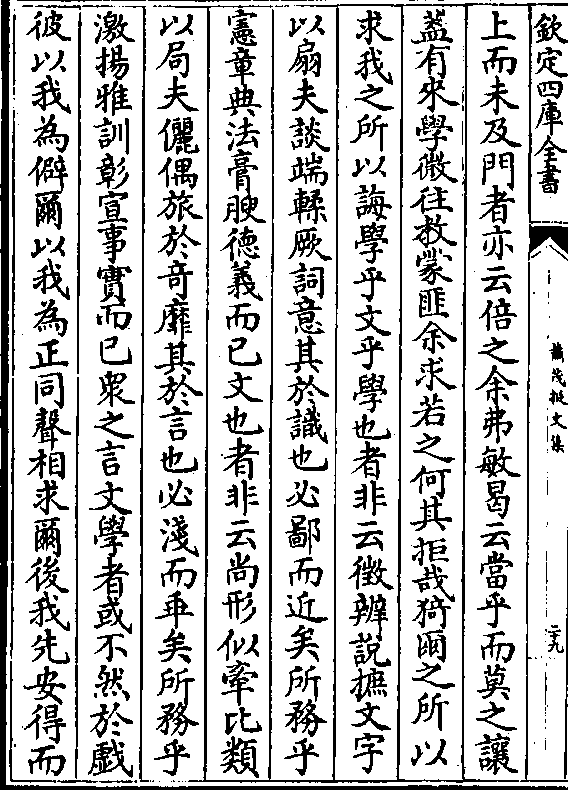 欽定四庫全書
蕭茂挺文集
二十九
上而未及門者亦云倍之余弗敏曷云當乎而莫之讓
蓋有來學微往教蒙匪余求若之何其拒哉猗爾之所以
求我之所以誨學乎文乎學也者非云徵辨説摭文字
以扇夫談端轇厥詞意其於識也必鄙而近矣所務乎
憲章典法膏腴德義而已文也者非云尚形似牽比類
以局夫儷偶旅於竒靡其於言也必淺而乖矣所務乎
激揚雅訓彰宣事實而已衆之言文學者或不然於戲
彼以我為僻爾以我為正同聲相求爾後我先安得而